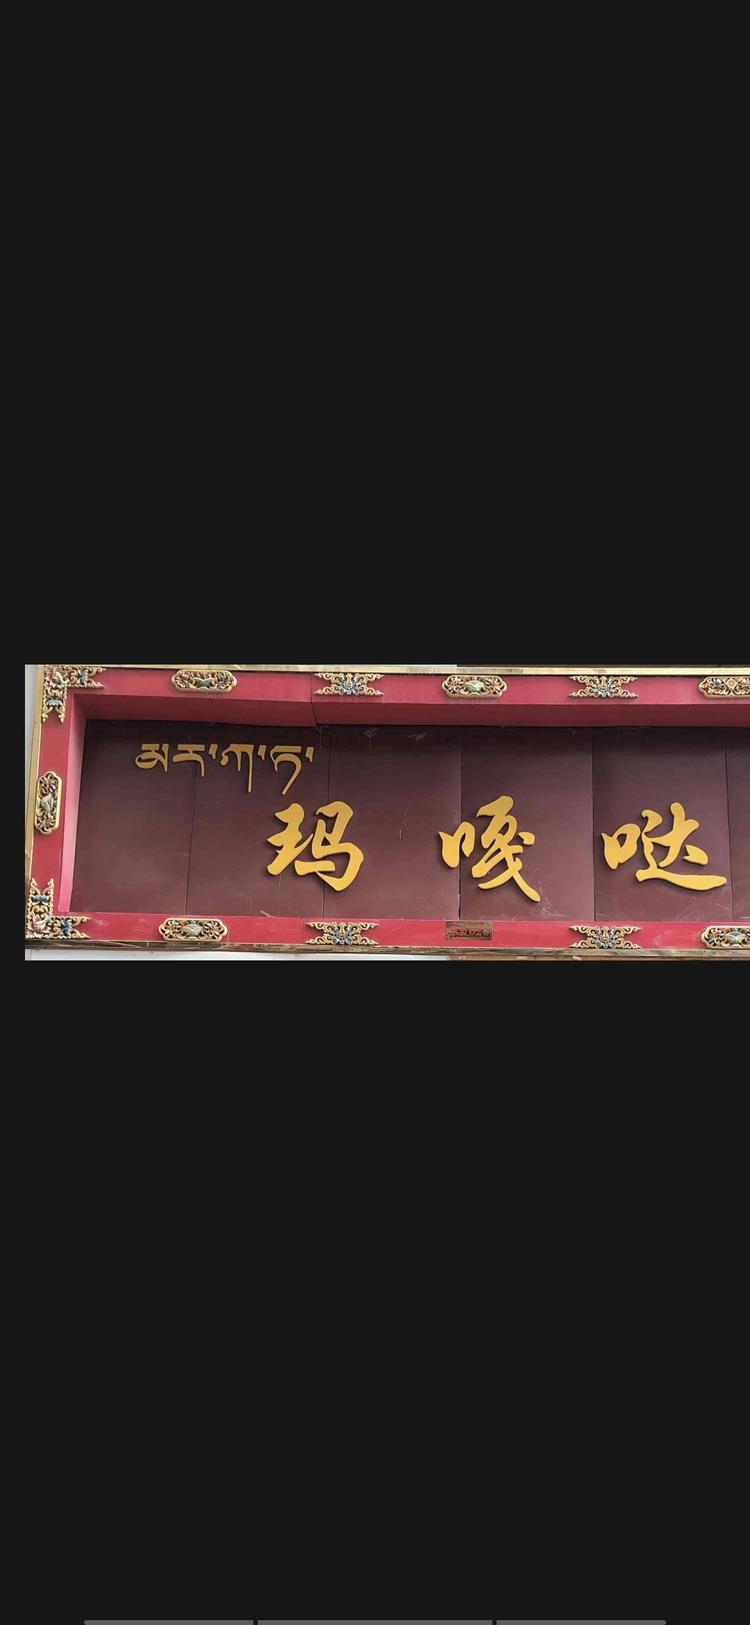 མར་ཀ་ཏ་
玛嘎哒